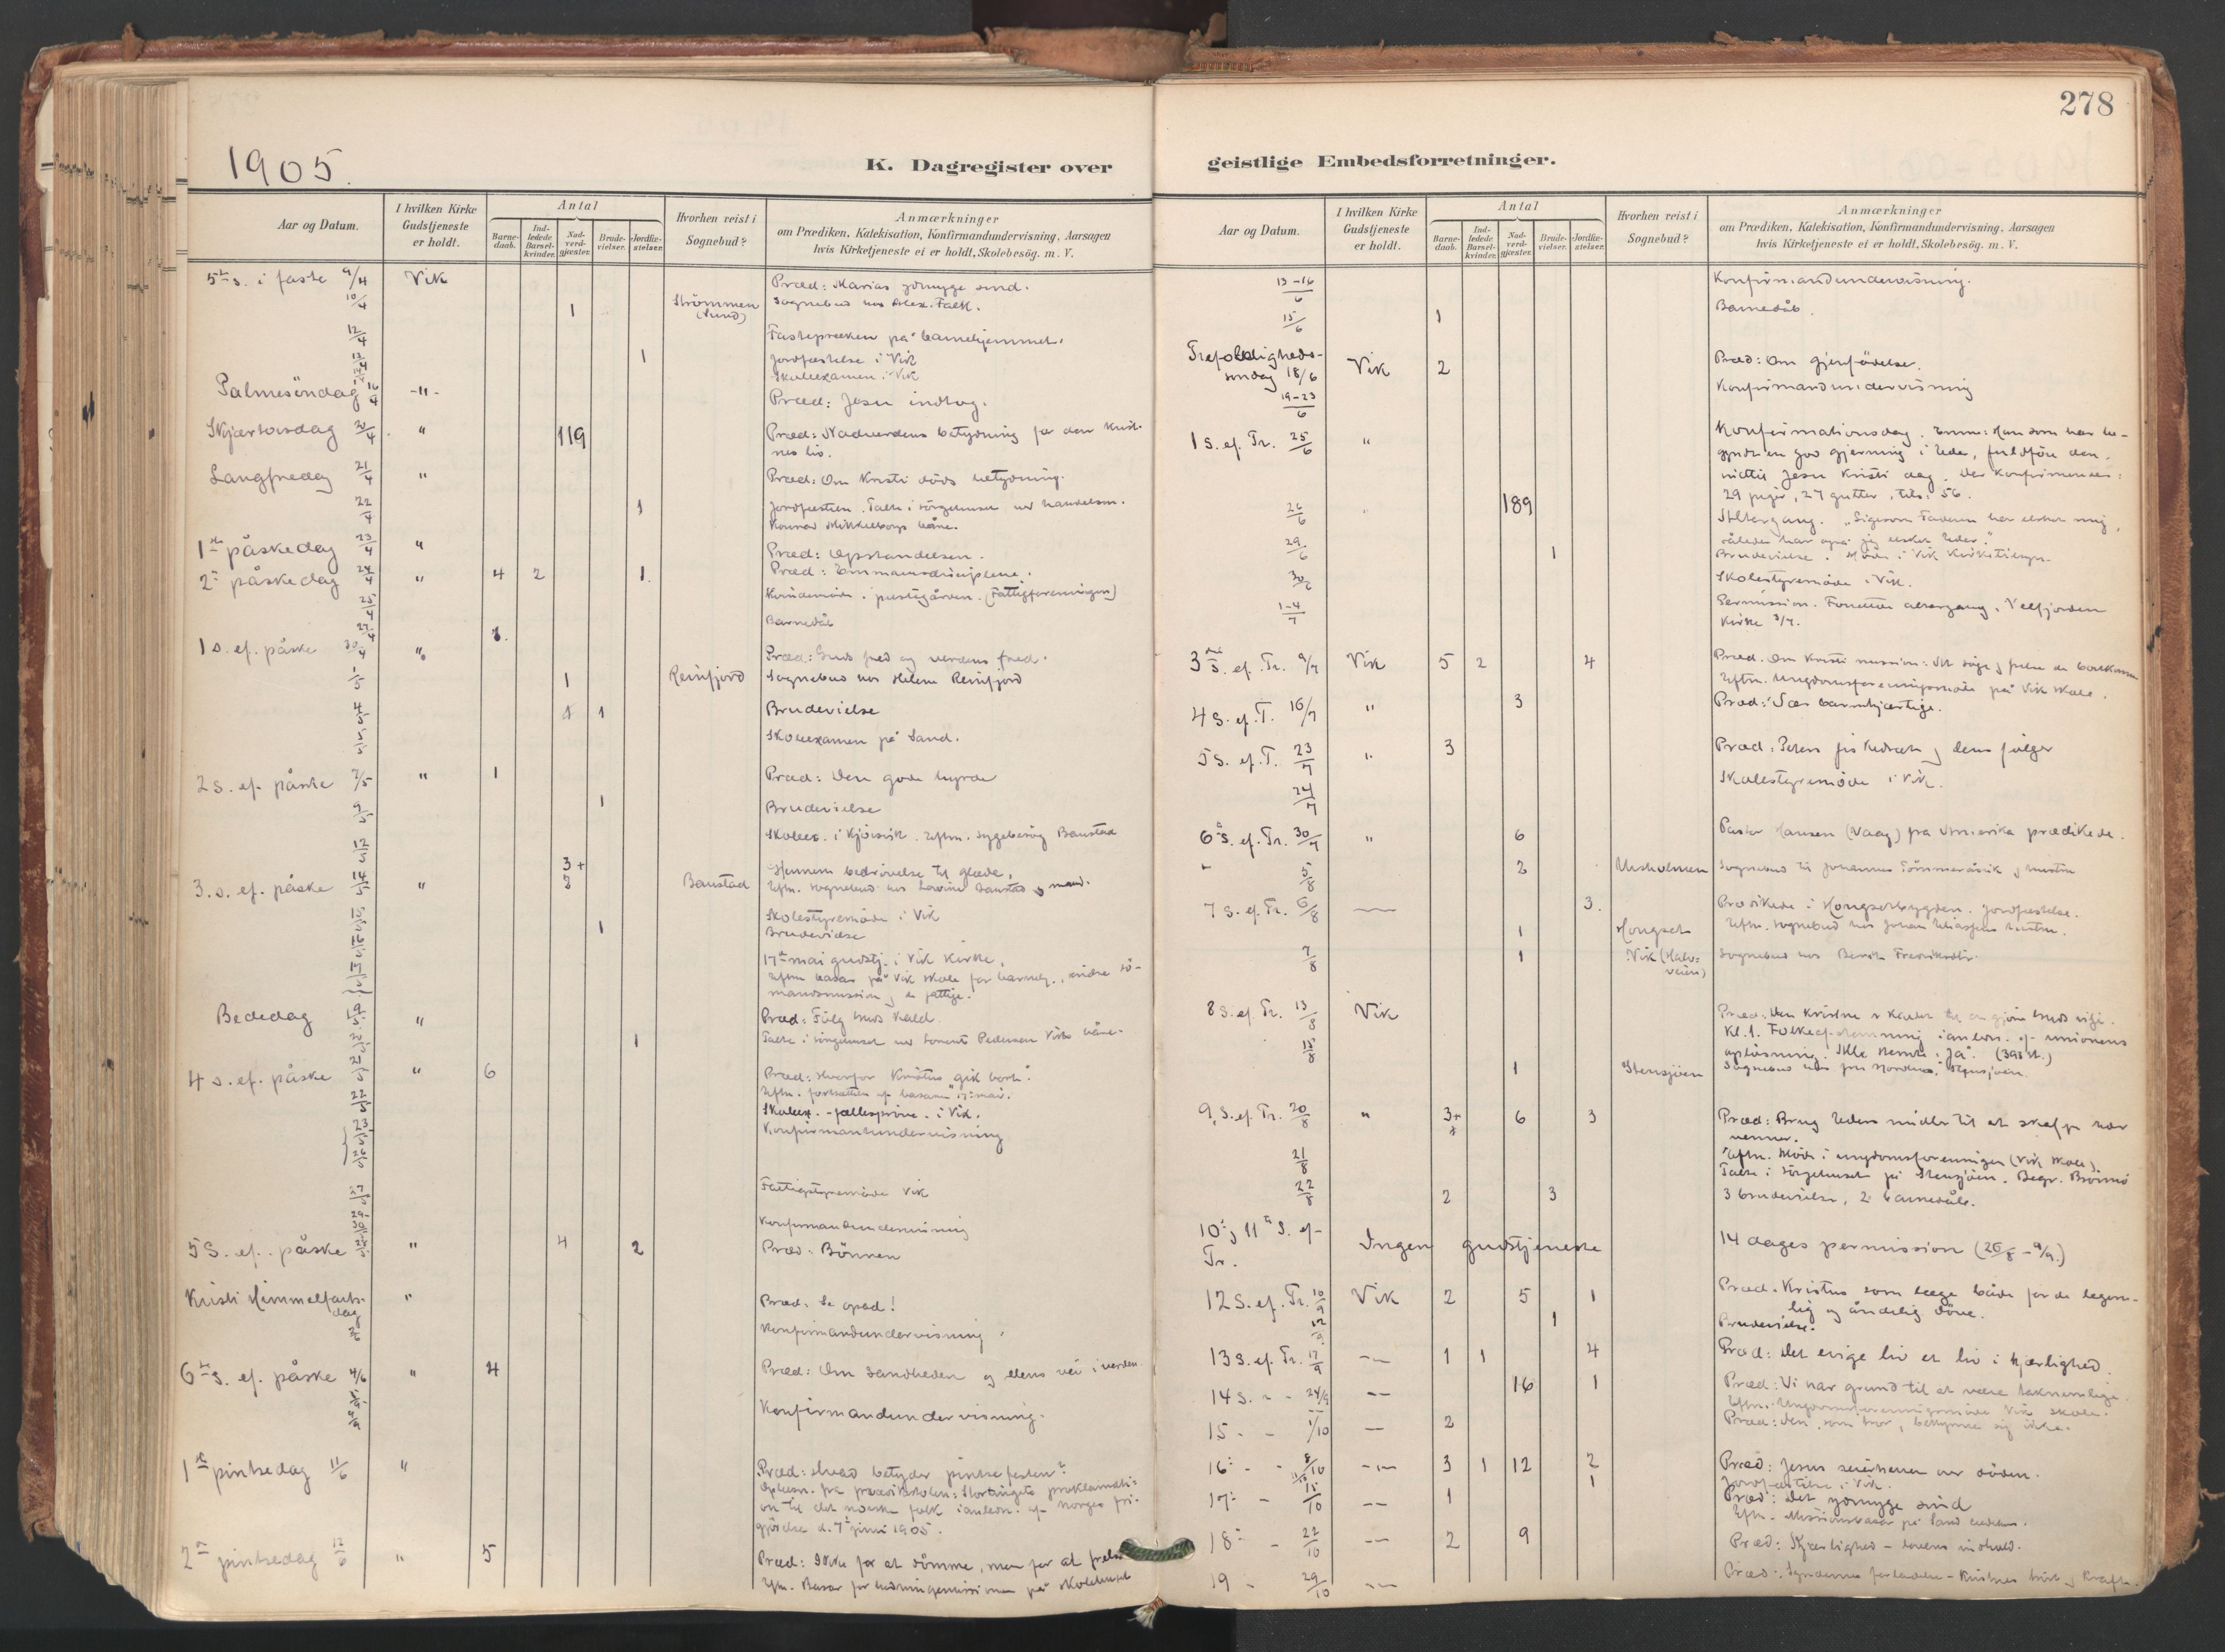 278
1905.
K. Dagregister over
geistlige Embedsforretninger.
Aar og Datum.
I hvilken Kirke Gudstjeneste er holdt.
Antal
Barne-daab.
Ind-ledede Barsel-kvinder.
Nad-verd-gjæster.
Brude-vielser.
Jordfæ-stelser.
Hvorhen reist i Sognebud?
Anmærkninger
om Prædiken, Katekisation, Konfirmandundervisning, Aarsagen
hvis Kirketjeneste ei er holdt, Skolebesög. m. V.
5te s. i faste 9/4 Vik Præd: Marias ydmyge sind.
10/4 1 Strömmen (Sund) Sognebud hos Falk.
12/4 Fastepræken på barnehjemmet.
13/4 1 Jordfæstelse i Vik
Skoleexamen i Vik
Palmesöndag 16/4 -"- Præd: Jesu indtog.
Skjærtorsdag 20/4 " 119 Præd: Nadverdens betydning for den krist-
nes liv.
Langfredag 21/4 " Præd: Om Kristi döds betydning.
22/4 1 Jordfæstelse. Talte i sörgehuset ved handelsm.
Konrad båre.
1ste påskedag 23/4 " Præd: Opstandelsen.
2den påskedag 24/4 " 4 2 1. Præd: Emmausdisciplene.
25/4 Kvindemöde i præstegården. (Fattigforeningen)
27/4 Barnedåb
1 s. ef. påske 30/4 " Præd: Guds fred og verdens fred.
1/5 1 Reinfjord Sognebud hos Helene Reinfjord
4/5 1 1 Brudevielse
5/5 Skoleexamen på Sand.
2 s. ef. påske 7/5 " 1 Præd: Den gode hyrde
9/5 1 Brudevielse
12/5 Skoleex. i Eftm. sygebesög Baustad
3. s. ef. påske 14/5 " 3+ 2 Baustad bedrövelse til glæde,
Eftm. sognebud hos Baustad og mand.
Skolestyremöde i Vik
1 Brudevielse
17de mai gudstj. i Vik kirke,
Eftm basar på Vik skole for barnehj., indre sö-
mandsmission og de fattige.
Bededag 19/5 " Præd: Fölg Guds kald
1 Talte i sörgehuset ved Pedersen båre.
4 s. ef. påske 21/5 " 6 Præd: Hvorfor Kristus "gik bort".
Eftm. fortsættelse af basaren 17de mai.
22/5 Skoleex. - fællespröve - i Vik.
Konfirmantundervisning
27/5 Fattigstyremöde Vik
Konfirmandundervisning
5 S. ef. påske " 4 2 Præd: Bönnen
Kristi Himmelfarts-
dag " Præd: Se opad!
Konfirmandundervisning.
6te s. ef. påske 4/6 " 4 Præd: Om Sandheden og dens vei i verden
Konfirmandundervisning.
1ste pinsedag 11/6 " Præd: Hvad betyder pinsefesten?
Oplæsn. fra prædikestolen: Stortingets proklamati-
on til det norske folk i anledn. af Norges fri-
gjörelse d. 7de juni 1905.
2den pinsedag 12/6 " 5 Præd: Ikke for at dömme, men for at frelse
Eftm. Basar for hedningemissionen på skolehuset
Aar og Datum.
I hvilken Kirke Gudstjeneste er holdt.
Antal
Barne-daab.
Ind-ledede Barsel-kvinder.
Nad-verd-gjæster.
Brude-vielser.
Jordfæ-stelser.
Hvorhen reist i Sognebud?
Anmærkninger
om Prædiken, Katekisation, Konfirmandundervisning, Aarsagen
hvis Kirketjeneste ei er holdt, Skolebesög. m. V.
13-16/6 Konfirmandundervisning.
15/6 1 Barnedåb.
Trefoldigheds-
söndag 18/6 Vik 2 Præd: Om gjenfödelse.
19-23/6 Konfirmandundervisning
1 S. ef. Tr. 25/6 " Konfirmationsdag. Emne: Han som har be-
gyndt en god gjerning i Eder, fuldföre den
indtil Jesu Kristi dag. Der konfirmeredes:
29 piger, 27 gutter, tils. 56.
26/6 189 Altergang. "Ligesom Faderen har elsket mig,
således har også jeg elsket Eder."
29/6 1 Brudevielse. Möde i Vik Kirketilsyn.
30/6 Skolestyremöde i Vik.
1-4/7 Permission. altergang, Velfjorden
kirke 3/7.
3die S. ef. Tr. 9/7 Vik 5 2 4 Præd. Om Kristi mission: At söge og frelse de bortkomne
Eftm. Ungdomsforeningsmöde på Vik skole.
4 S. ef. T. 16/7 " 3 Præd: Vær barmhjærtige.
5 S. ef. T. 23/7 " 3 Præd: Peters fiskedræt og dens fölger
24/7 Skolestyremöde i Vik.
6te S. ef. Tr. 30/7 " 6 Pastor Hansen (Vaag) fra Amerika prædikede.
5/8 2 Sognebud til Johannes og hustru
7 S. ef. Tr. 6/8 — 3. Prædikede i Jordfæstelse.
1 Hongset Eftm. sognebud hos Johan hustru.
7/8 1 Vik Sognebud hos Berit
8 S. ef. Tr. 13/8 Vik Præd: Den kristne er kaldet til at gjöre Guds vilje.
Kl. 1. Folkeafstemning i anledn. af unionens
oplösning. Alle stemte: Ja". (393 st.)
15/8 1 Stensjöen Sognebud hos fru Nordhus, Stensjöen.
9. S. ef. Tr. 20/8 " 3+ 6 3 Præd: Brug Eders midler til at skaffe Eder
venner.
21/8 Eftm. Möde i ungdomsforeningen (Vik skole).
Talte i sörgehuset på Stensjöen. Begr. Brönnö
22/8 2 3 3 brudevielse, 2 barnedåb.
10de og 11te S. ef-
Tr. Ingen gudstjeneste 14 dages permission (26/8 - 9/9.)
12 S. ef. Tr. 10/9 Vik 2 5 1 Præd. Kristus som læge både for de legem-
lig og åndelig döve.
12/9 1 Brudevielse.
13 S. ef. Tr. 17/9 -"- 1 1 4 Præd: Det evige liv et liv i kjærlighed.
14 S. - - 24/9 -"- 16 1 Præd: Vi har grund til at være taknemlige.
Eftm. Ungdomsforeningsmöde Vik skole.
15 - - 1/10 — 2 Præd: Den, som tror, bekymre sig ikke.
16de - - 8/10 -"- 3 1 12 2 Præd: Jesus seierherren over döden.
11/10 1 Jordfæstelse i Vik.
17de - 15/10 -- 1 Præd: Det ydmyge sind
Eftm. Missionsbasar på Sand
18de - 22/10 -"- 2 9 Præd: Kjærlighed - lovens indhold.
19 - 29/10 -"- Præd: Syndernes forladelse - Kristnes tröst og kraft.